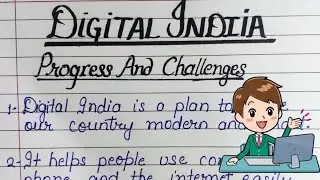 DIGITAL INDIIA
Progress And Challenges
1- Digital India is a plan to
our country modern and
2- It helps people use
phone and the internet easily